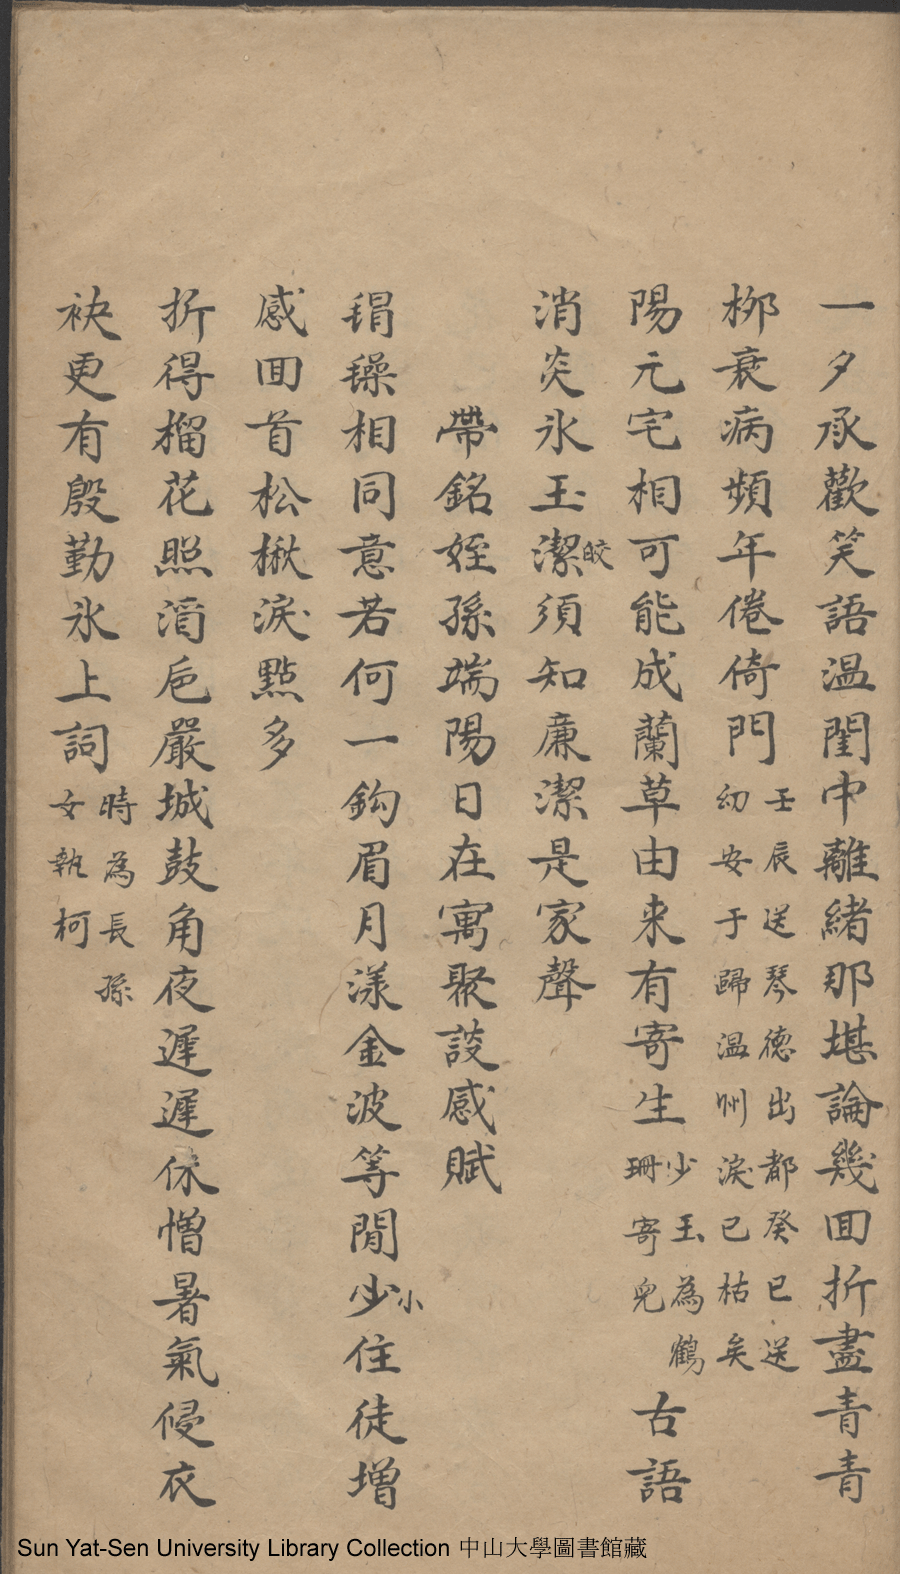 一夕承歡笑語温閨中離緒那堪論幾回折盡青青
栁衰病頻年倦倚門壬辰送琴德出都癸巳送
幼安于歸温州淚已枯矣
陽元宅相可能成蘭草由来有寄生少玉為鶴
珊寄兒古語
消炎氷玉潔皎須知廉潔是家聲
帶銘姪孫端陽日在寓聚談感賦
鋗鐰相同意若何一鈎眉月漾金波等閒少小住徒增
感回首松楸淚點多
折得榴花照酒巵嚴城鼓角夜遲遲休憎暑氣侵衣
袂更有殷勤氷上詞時為長孫
女執柯
Sun Yat-Sen University Library Collection 中山大學圖書館藏